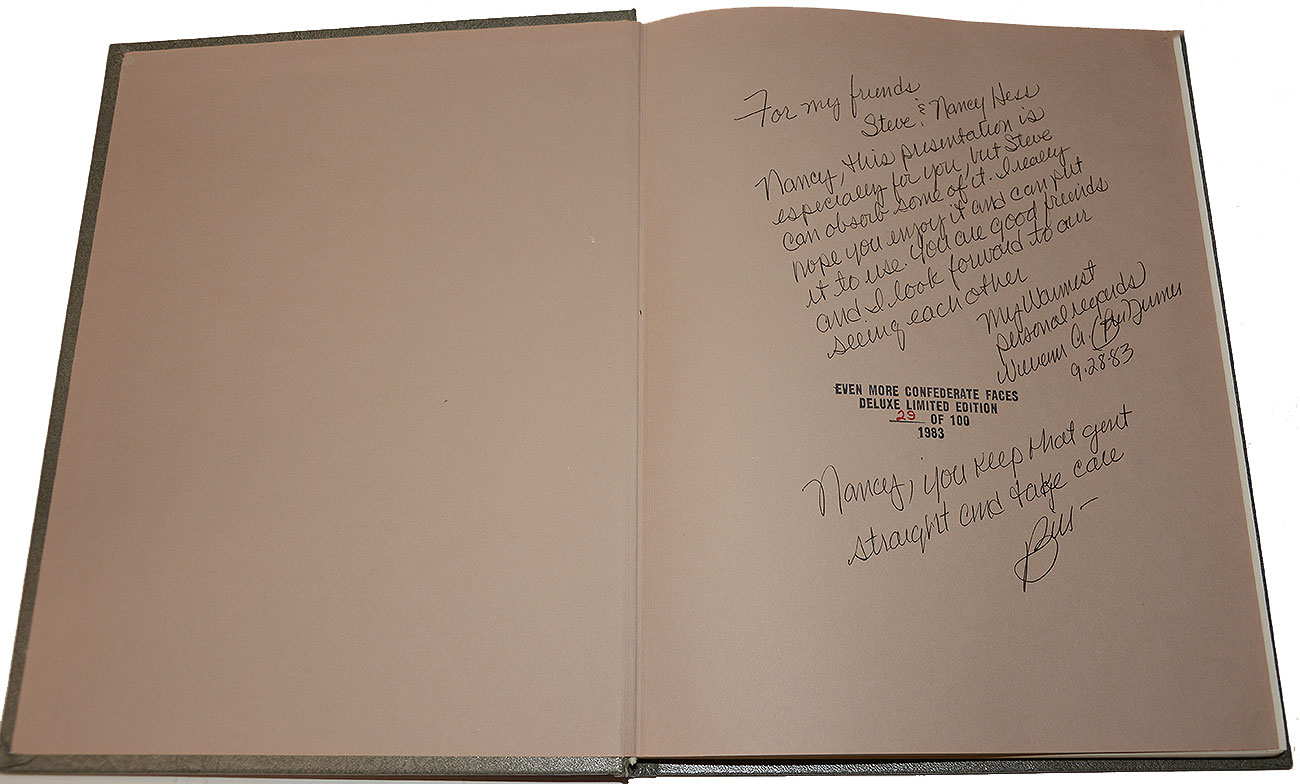 For my friends
Steve & Nancy Hess
Nancy, this presentation is
especially for you, but Steve
can absorb some of it. I really
hope you enjoy it and can put
it to use. You are good friends
and I look forward to our
seeing each other
My Warmest
personal regards
William A. (Bill) Turner
9-28-83
EVEN MORE CONFEDERATE FACES
DELUXE LIMITED EDITION
29 OF 100
1983
Nancy, you keep that gent
straight and take care
Bill-